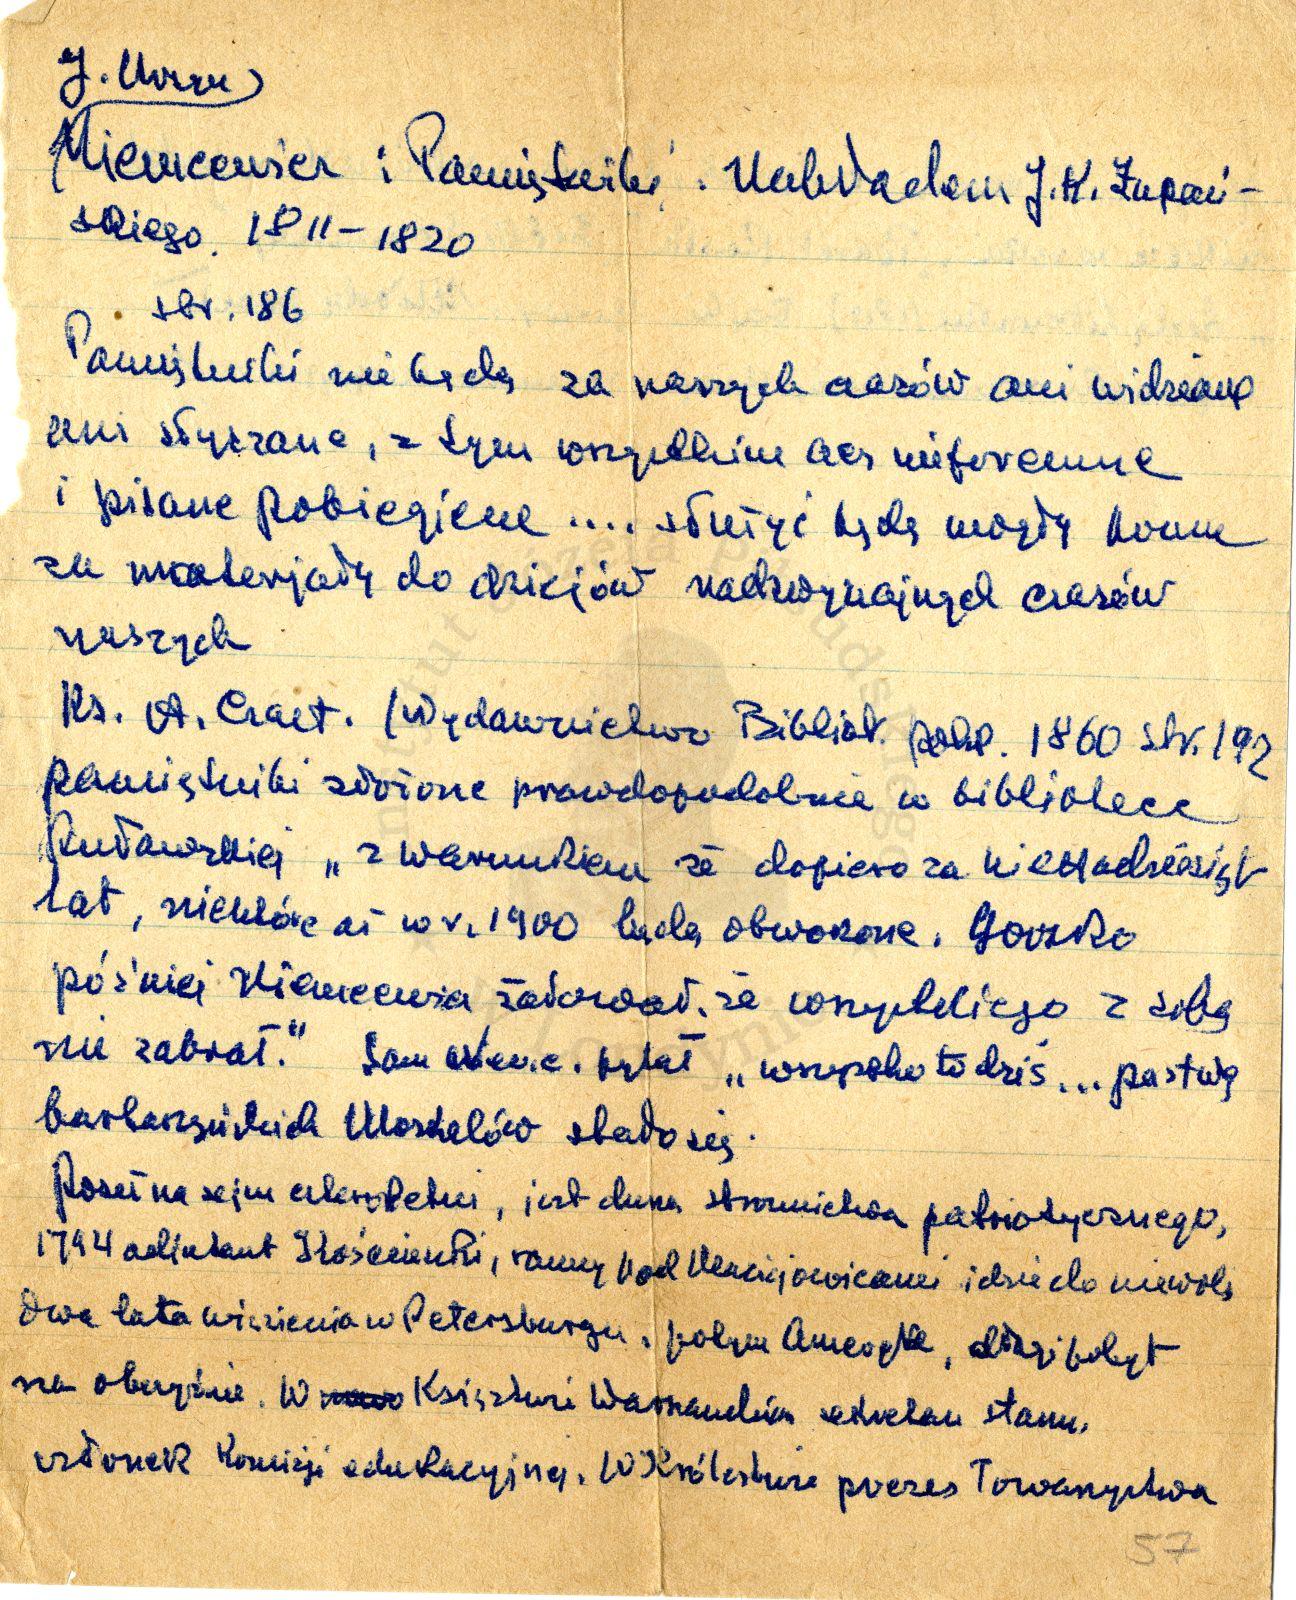 J. Ursyn
Niemcewicz i Pamiętniki. Nakładem J.K. Żupań-
skiego. 1811–1820
str. 186
Pamiętniki nie będą za naszych czasów ani widziane
ani słyszane, z tym wszystkim acz nieforemne
i pisane pobieżnie .... służyć będą mogły komu
za materjały do dziejów nadzwyczajnych czasów
naszych
Ks. A. Czart. (Wydawnictwo Bibliot. pol. 1860 str. 192
pamiętniki złożone prawdopodobnie w bibliotece
Puławskiej „z warunkiem że dopiero za kilkadziesiąt
lat, niektóre aż w r. 1900 będą otworzone. Gorzko
później Niemcewicz żałował, że wszystkiego z sobą
nie zabrał." Sam Niemc. pytał „wszystko to dziś ... pastwą
barbarzyńskich Moskalów stało się.
Poseł na sejm czteroletni, jest dusza stronnictwa patriotycznego,
1794 adiutant Kościuszki, ranny pod Maciejowicami idzie do niewoli
dwa lata więzienia w Petersburgu, potym Ameryka, dłuższy pobyt
na obczyźnie. W Księstwie Warszawskim sekretarz stanu,
członek Komisji edukacyjnej. W Królestwie prezes Towarzystwa
57
Instytut Józefa Piłsudskiego
w Londynie